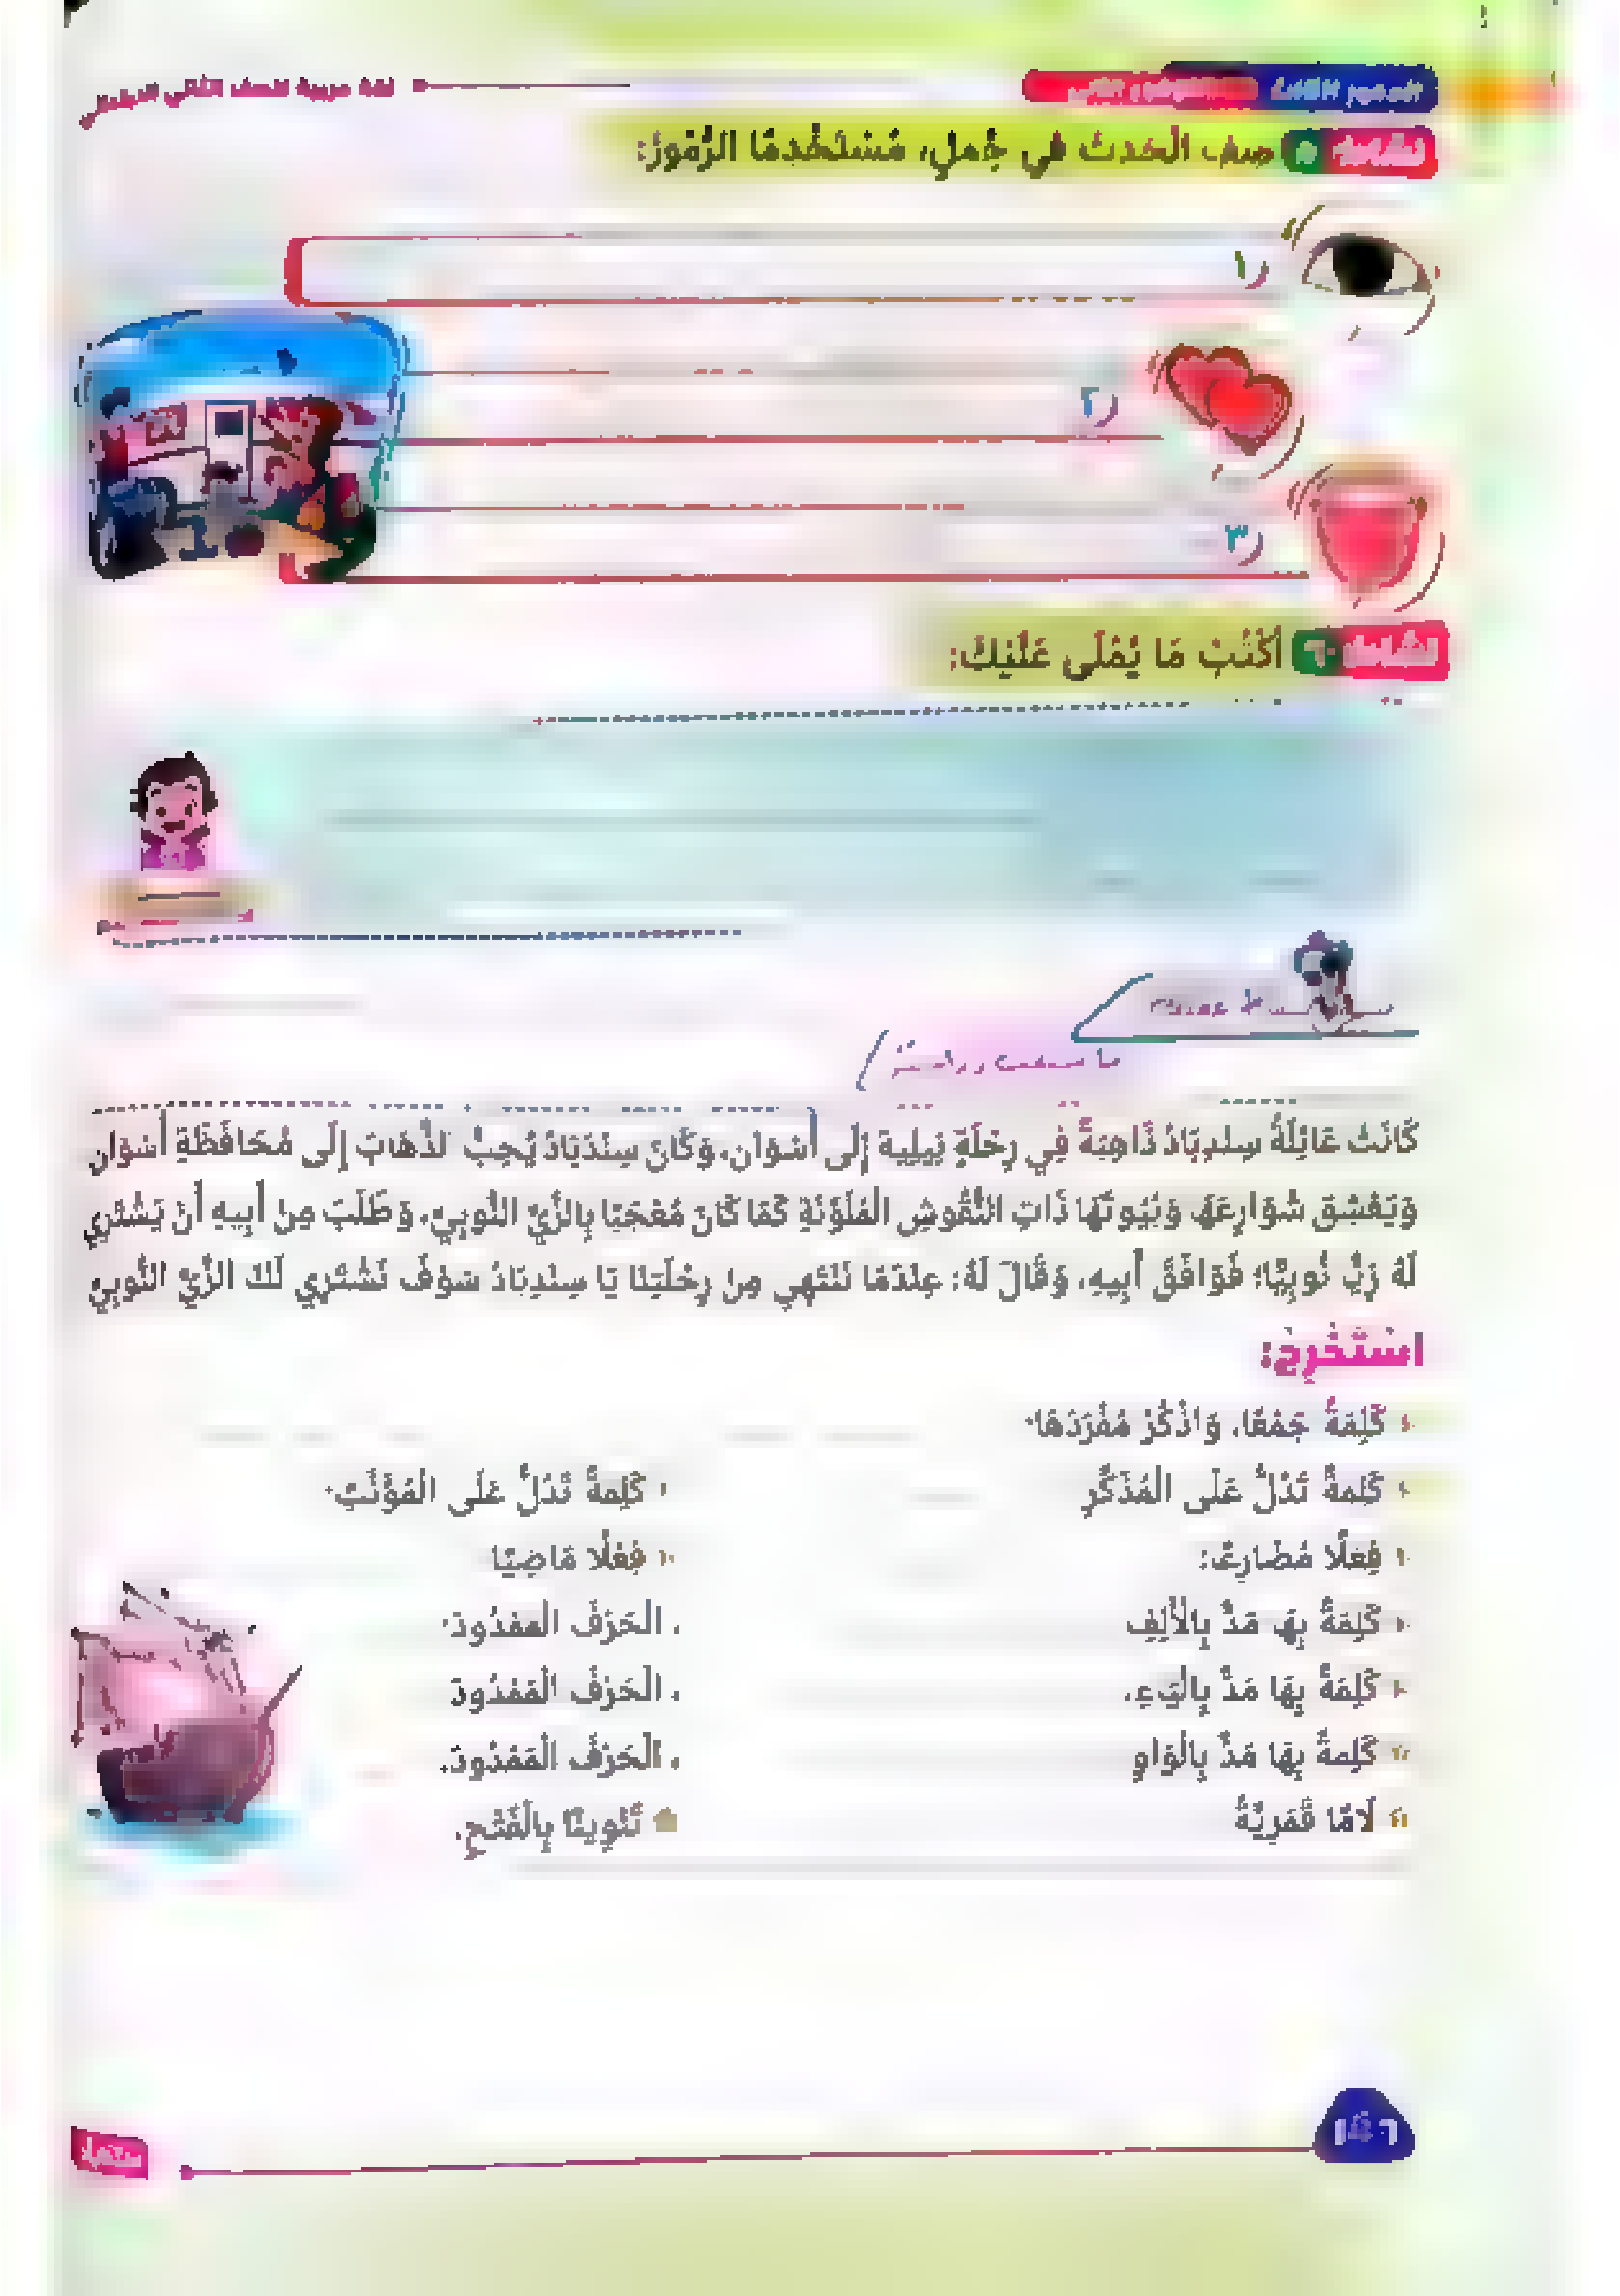 لغة عربية للصف الثاني
نشاط ٥ صِفِ الْحَدَثَ في جُملٍ، مُسْتَخْدِمًا الرُّمُوزَ:
١)
٢)
٣)
نشاط ٦ اُكْتُبْ مَا يُمْلَى عَلَيْكَ:
كَانَتْ عَائِلَةُ سِندِبَادُ ذَاهِبَةً فِي رِحْلَةٍ نِيلِيةٍ إِلَى أَسْوَان، وَكَانَ سِنْدَبَادُ يُحِبُّ الذَّهَابَ إِلَى مُحَافَظَةِ أَسْوَان
وَيَعْشِقَ شَوَارِعَهَا وَبُيُوتَهَا ذَاتِ النُّقُوشِ الْمُلَوَّنَةِ كَمَا كَانَ مُعْجَبًا بِالزِّيِّ النُّوبِيِّ، وَطَلَبَ مِنْ أَبِيهِ أَنْ يَشْتَرِي
لَهُ زِيًّ نُوبِيًّا؛ فَوَافَقَ أَبِيهِ، وَقَالَ لَهُ: عِنْدَمَا نَنْتَهِي مِنْ رِحْلَتِنَا يَا سِنْدِبَادُ سَوْفَ نَشْتَرِي لَكَ الزِّيَّ النُّوبِيَّ
اسْتَخْرِجْ:
كَلِمَةً جَمْعًا، وَاذْكُرْ مُفْرَدَهَا:
كَلِمةً تَدُلُّ عَلَى الْمُذَكَّرِ
كَلِمةً تَدُلُّ عَلَى الْمُؤَنَّثِ:
فِعْلًا مُضَارِعًا:
فِعْلًا مَاضِيًا
كَلِمَةً بِهَا مَدٌّ بِالْأَلِفِ
، الْحَرْفُ الْمَمْدُودُ:
كَلِمَةً بِهَا مَدٌّ بِالْيَاءِ،
، الْحَرْفُ الْمَمْدُودُ
كَلِمةً بِهَا مَدٌّ بِالْوَاوِ
، الْحَرْفُ الْمَمْدُودُ:
لَامًا قَمَرِيَّةً
تَنْوِينًا بِالْفَتْحِ: